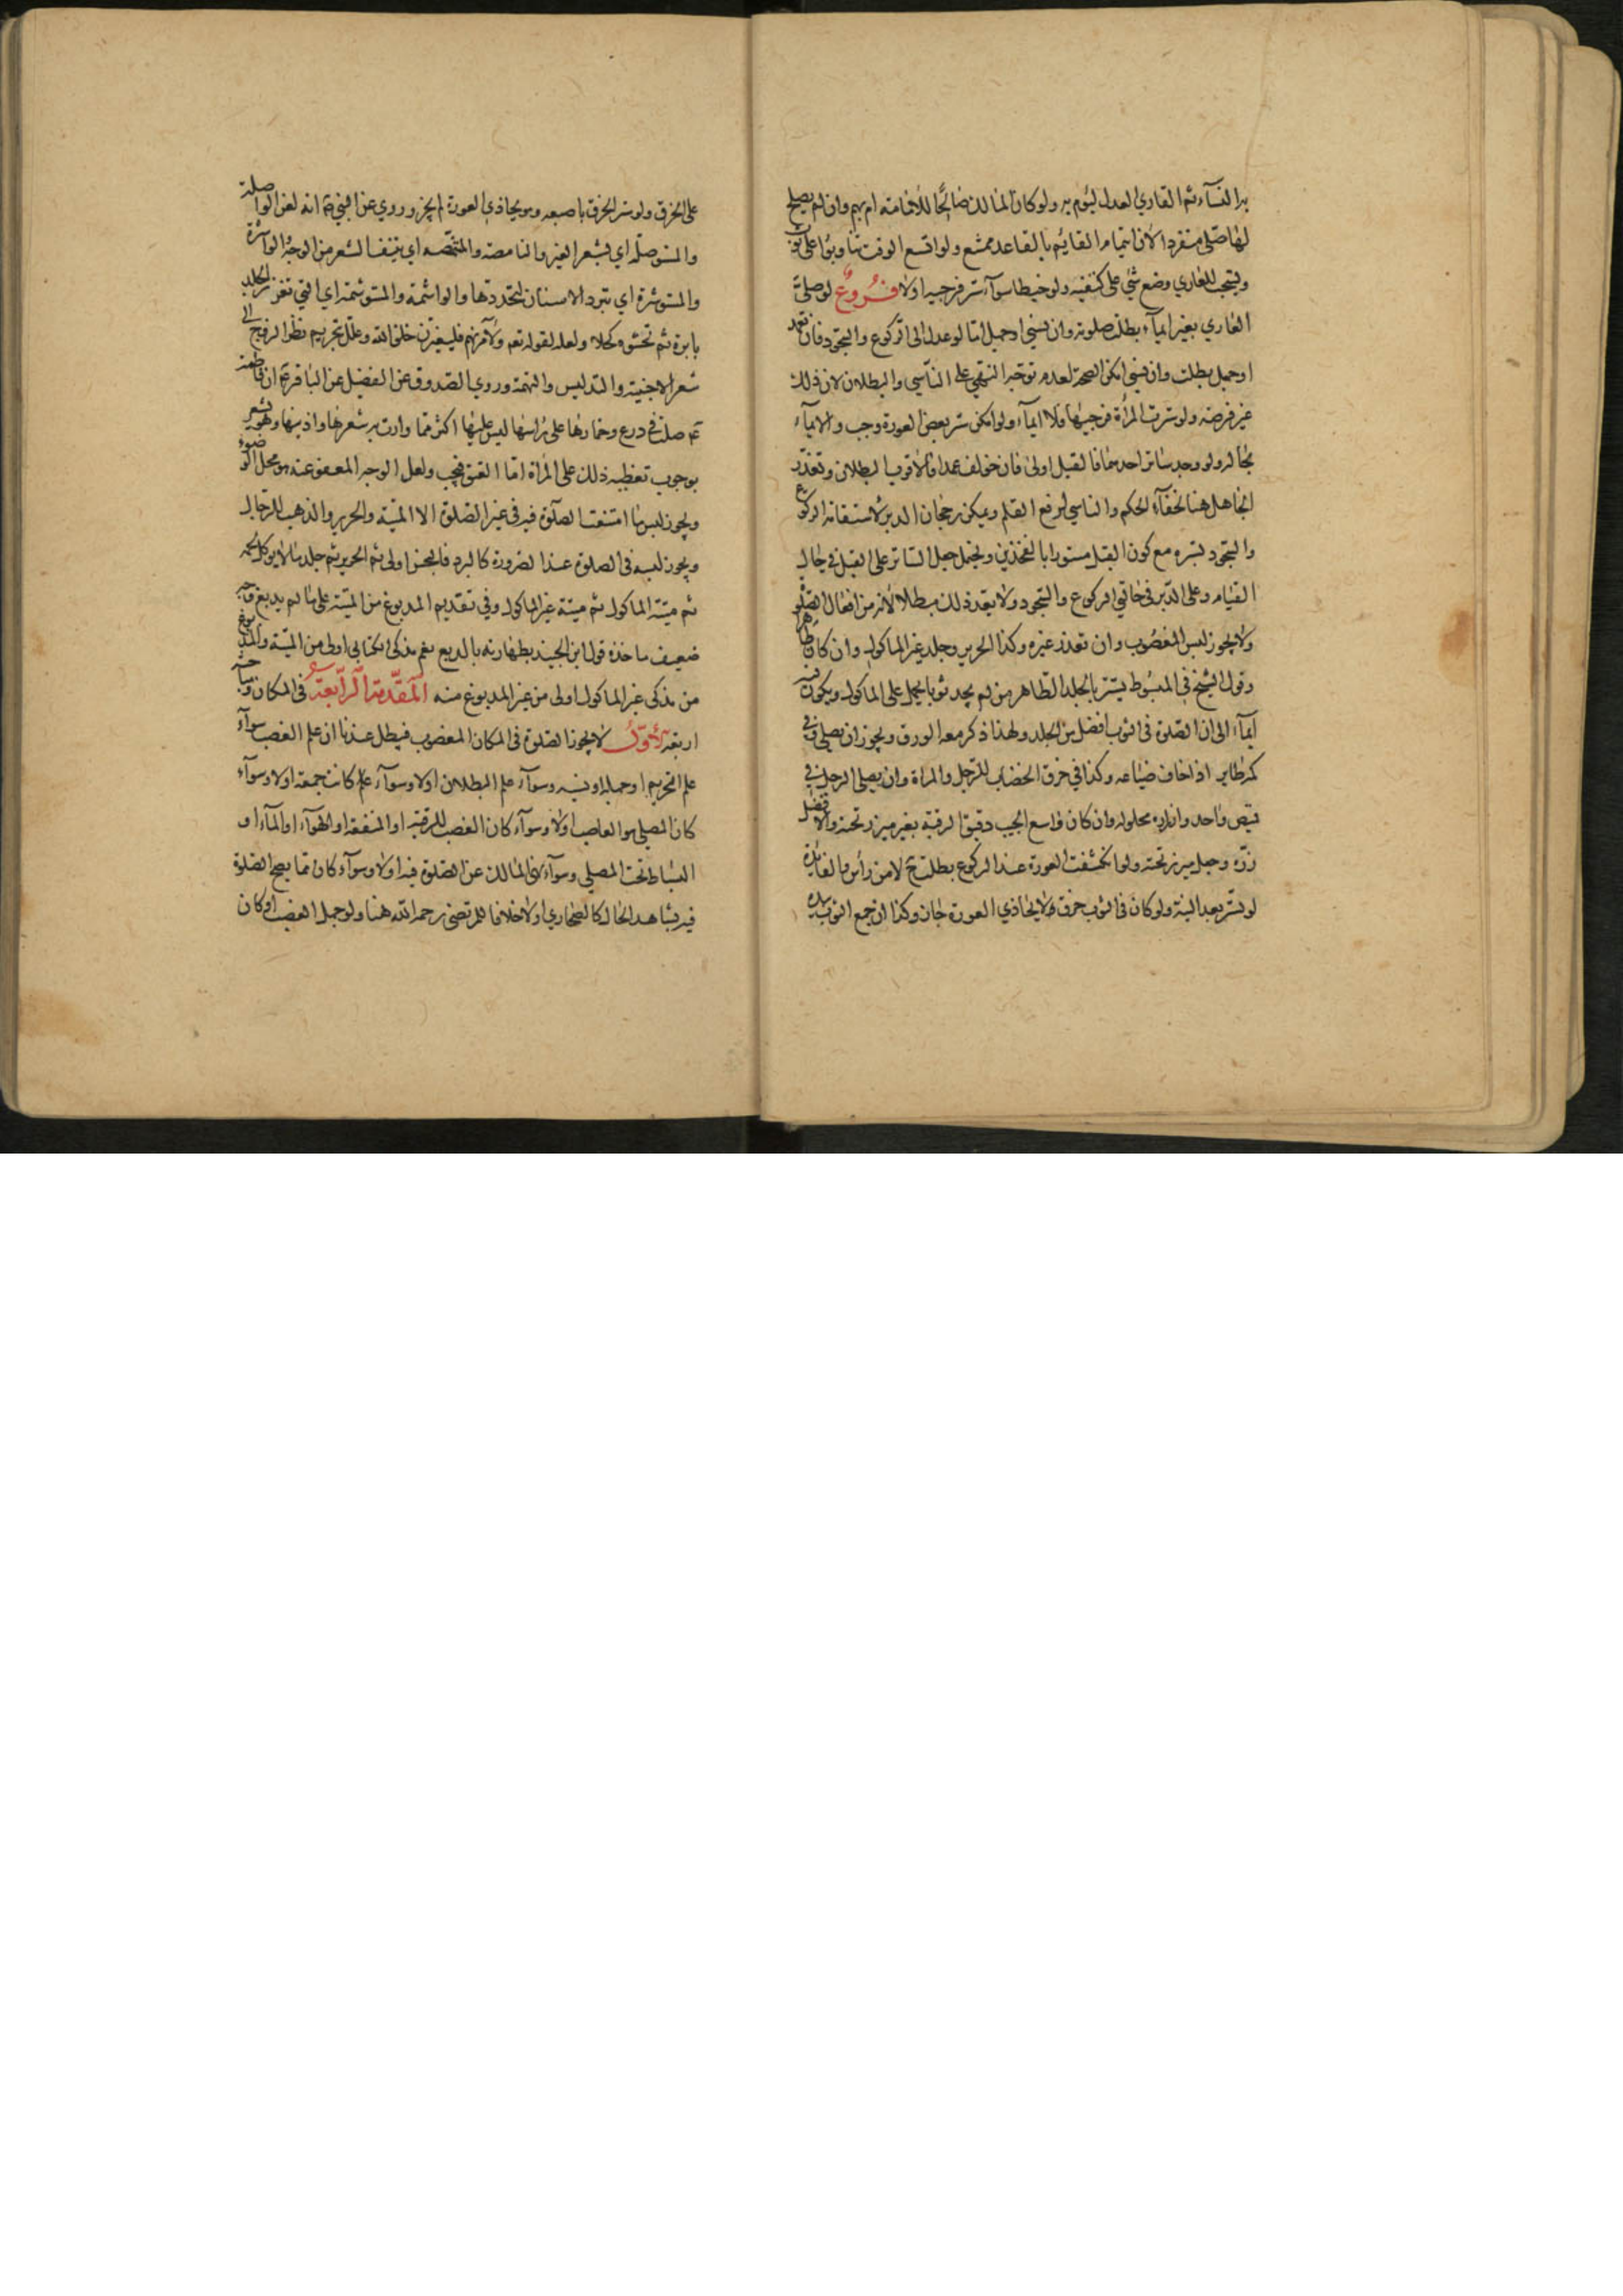 به النسآء ثم القاري العدل ليؤم به ولو كان المالك صالحًا للامامة ام بهم وان لم يصلح
لها صلى منفردا لان ايتمام القايم بالقاعد ممتنع ولو اتسع الوقت تناوبوا على ثوب
ويستحب للعاري وضع شئ على كتفيه ولو خيطا سوآء ستر فرجيه اولا فروع لو صلى
العاري بغير ايمآء بطلت صلوته وان نسي او جهل امّا لو عدل الى الركوع والسجود فان تعمد
او جهل بطلت وان نسي امكن الصحة لعدم توجه النهي على الناسي والبطلان لان ذلك
غير فرضه ولو سترت المرأة فرجيها فلا ايمآء ولو امكن ستر بعض العورة وجب والايمآء
بحاله ولو وجد ساتر احدهما فالقبل اولى فان خولف عمدا فالاقرب البطلان وتعذر
الجاهل هنا لخفآء الحكم والناسي لرفع القلم ويمكن رجحان الدبر لاستقامة الركوع
والسجود بستره مع كون القبل مستورا بالفخذين ويحتمل جعل الساتر على القبل في حال
القيام وعلى الدبر في حالتي الركوع والسجود ولا يعد ذلك مبطلا لانه من افعال الصلوة
ولا يجوز لبس المغصوب وان تعذر غيره وكذا الحرير وجلد غير الماكول وان كان طاهرا
وقول الشيخ في المبسوط يستتر بالجلد الطاهر من لم يجد ثوبا يحمل على الماكول ويكون فيه
ايمآء الى ان الصلوة في الثوب افضل من الجلد ولهذا ذكر معه الورق ويجوز ان يصلي وفي
كمه طاير اذا خاف ضياعه وكذا في خرق الخضاب للرجل والمراة وان يصلي الرجل في
قميص واحد وازراره محلوله وان كان واسع الجيب دقيق الرقبة بغير ميزر تحته والافضل
زرّه وجعل ميزر تحته ولو انكشفت العورة عند الركوع بطلت ح لا من راس والفايدة
لو استتر بعد النية ولو كان في الثوب خرق لا يحاذي العورة جاز وكذا ان جمع الثوب بيده
على الخرق ولو ستر الخرق باصبعه وهو يحاذي العورة لم يجز وروي عن النبي انه لعن الواصلة
والمستوصلة اي بشعر الغير والنامصة والمتنمّصه اي بنتف الشعر من الوجه والواشرة
والمستوشرة اي تبرد الاسنان لتحددها والواشمة والمستوشمة اي التي تغرز الجلد
بابرة ثم تحشوه كحلا ولعله لقوله تعم ولآمرنهم فليغيرن خلق الله وعلل بتحريم نظر الزوج الى
شعر الاجنبية والتدليس والتهمة وروي الصدوق عن الفضيل عن الباقر ان فاطمة
صلت في درع وخمارها على راسها ليس عليها اكثر مما وارت به شعرها واذنيها وهو يشعر
بوجوب تغطية ذلك على المراة امّا العنق فيجب ولعل الوجه المعفو عنه هو محل الوضوء
ويجوز لبس ما امتنعت الصلوة فيه في غير الصلوة الا الميتة والحرير والذهب للرجال
ويجوز لبسه في الصلوة عند الضرورة كالبرد فالنجس اولى ثم الحرير ثم جلد ما لا يوكل لحمه
ثم ميتة الماكول ثم ميتة غير الماكول وفي تقديم المدبوغ من الميتة على ما لم يدبغ وجه
ضعيف ماخذه قول ابن الجنيد بطهارته بالدبغ نعم مذكى الكتابي اولى من الميتة والمدبوغ
من مذكى غير الماكول اولى من غير المدبوغ منه المقدّمة الرابعة في المكان ومباحثه
اربعة الاوّل لا يجوز الصلوة في المكان المغصوب فيبطل عندنا ان علم الغصب سوآء
علم التحريم او جهله او نسيه وسوآء علم البطلان اولا وسوآء كانت جمعة اولا وسوآء
كان المصلي هو الغاصب اولا وسوآء كان الغصب للرقبة او المنفعة او الهوآء او المآء او
البساط تحت المصلي وسوآء نهى المالك عن الصلوة فيه اولا وسوآء كان مما يصح الصلوة
فيه بشاهد الحال كالصحاري اولا خلافا للمرتضى رحمه الله هنا ولو جهل الغصب او كان